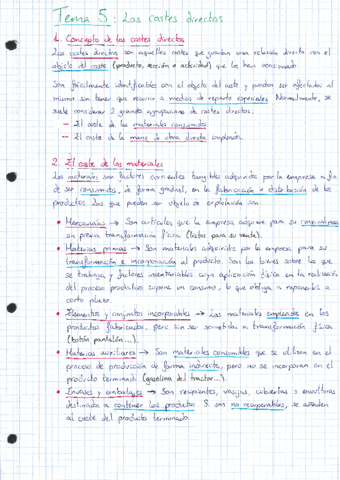 Tema 5: Los costes directos
1. Concepto de los costes directos
Los costes directos son aquellos costes que guardan una relación directa con el
objeto del coste (producto, sección o actividad) que les han ocasionado.
Son fácilmente identificables con el objeto del coste y pueden ser afectados al
mismo sin tener que recurrir a medios de reparto especiales. Normalmente, se
suele considerar 2 grandes agrupaciones de costes directos:
— El coste de los materiales consumidos
— El coste de la mano de obra directa empleada.
2. El coste de los materiales
Los materiales son factores corrientes tangibles adquiridos por la empresa a fin
de ser consumidos, de forma gradual, en la fabricación o distribución de los
productos. Los que pueden ser objeto de explotación son:
• Mercancías → Son artículos que la empresa adquiere para su comercialización
sin previa transformación física (listos para su venta).
• Materias primas → Son materiales adquiridos por la empresa para su
transformación e incorporación al producto. Son los bienes sobre los que
se trabaja y factores inventariables cuya aplicación física en la realización
del proceso productivo supone un consumo, lo que obliga a reponerlos a
corto plazo.
• Elementos y conjuntos incorporables → Los materiales empleados en los
productos fabricados, pero sin ser sometidos a transformación física
(botón pantalón...).
• Materias auxiliares → Son materiales consumibles que se utilizan en el
proceso de producción de forma indirecta, pero no se incorporan en el
producto terminado (gasolina del tractor...).
• Envases y embalajes → Son recipientes, vasijas, cubiertas o envolturas
destinado a contener los productos. Si son no recuperables, se añaden
al coste del producto terminado.